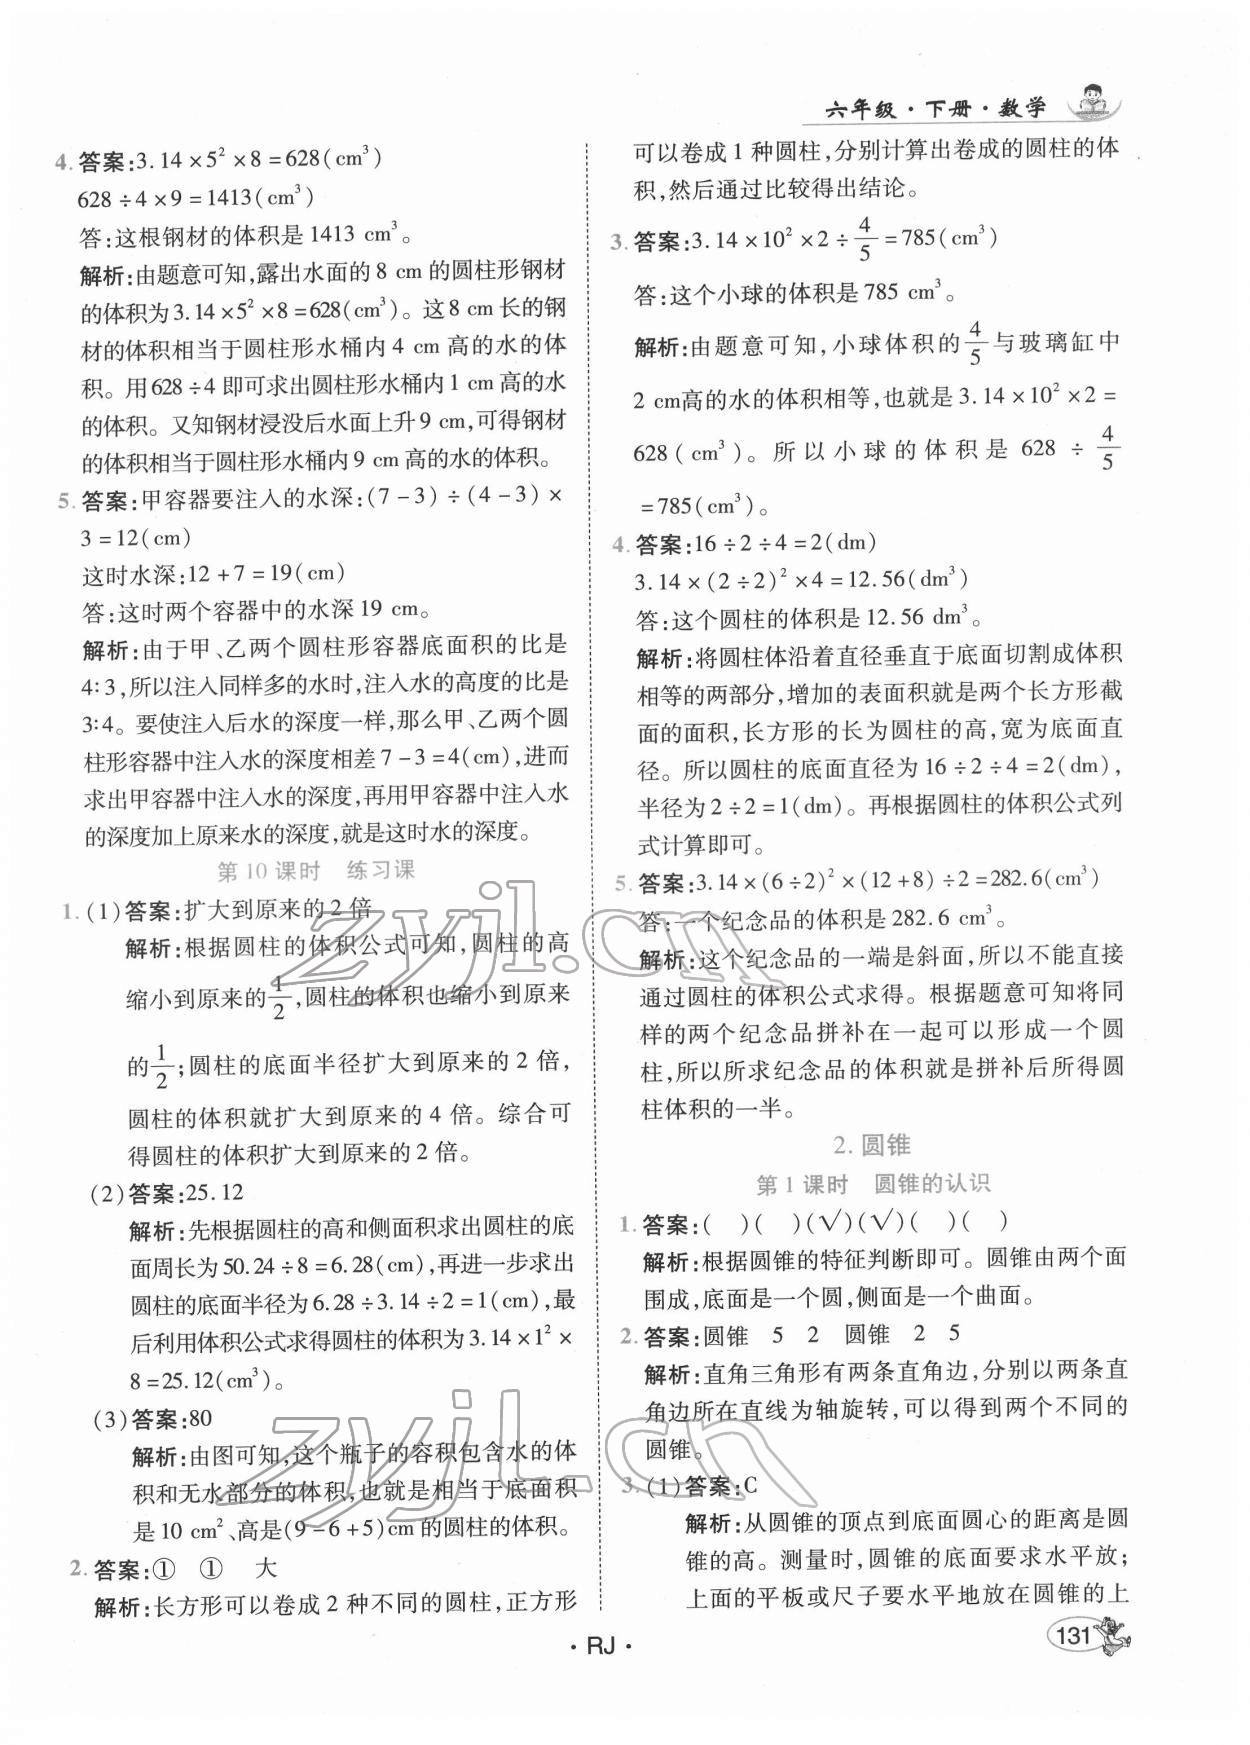 六年级·下册·数学
4. 答案:3.14×5²×8=628(cm³)
628÷4×9=1413(cm³)
答:这根钢材的体积是1413 cm³。
解析:由题意可知,露出水面的8 cm的圆柱形钢材
的体积为3.14×5²×8=628(cm³)。这8 cm长的钢
材的体积相当于圆柱形水桶内4 cm高的水的体
积。用628÷4即可求出圆柱形水桶内1 cm高的水
的体积。又知钢材浸没后水面上升9 cm,可得钢材
的体积相当于圆柱形水桶内9 cm高的水的体积。
5. 答案:甲容器要注入的水深:(7-3)÷(4-3)×
3=12(cm)
这时水深:12+7=19(cm)
答:这时两个容器中的水深19 cm。
解析:由于甲、乙两个圆柱形容器底面积的比是
4∶3,所以注入同样多的水时,注入水的高度的比是
3∶4。要使注入后水的深度一样,那么甲、乙两个圆
柱形容器中注入水的深度相差7-3=4(cm),进而
求出甲容器中注入水的深度,再用甲容器中注入水
的深度加上原来水的深度,就是这时水的深度。
第10课时 练习课
1. (1)答案:扩大到原来的2倍
解析:根据圆柱的体积公式可知,圆柱的高
缩小到原来的1/2,圆柱的体积也缩小到原来
的1/2;圆柱的底面半径扩大到原来的2倍,
圆柱的体积就扩大到原来的4倍。综合可
得圆柱的体积扩大到原来的2倍。
(2)答案:25.12
解析:先根据圆柱的高和侧面积求出圆柱的底
面周长为50.24÷8=6.28(cm),再进一步求出
圆柱的底面半径为6.28÷3.14÷2=1(cm),最
后利用体积公式求得圆柱的体积为3.14×1²×
8=25.12(cm³)。
(3)答案:80
解析:由图可知,这个瓶子的容积包含水的体
积和无水部分的体积,也就是相当于底面积
是10 cm²、高是(9-6+5)cm的圆柱的体积。
2. 答案:① ① 大
解析:长方形可以卷成2种不同的圆柱,正方形
可以卷成1种圆柱,分别计算出卷成的圆柱的体
积,然后通过比较得出结论。
3. 答案:3.14×10²×2÷4/5=785(cm³)
答:这个小球的体积是785 cm³。
解析:由题意可知,小球体积的4/5与玻璃缸中
2 cm高的水的体积相等,也就是3.14×10²×2=
628(cm³)。所以小球的体积是628÷4/5
=785(cm³)。
4. 答案:16÷2÷4=2(dm)
3.14×(2÷2)²×4=12.56(dm³)
答:这个圆柱的体积是12.56 dm³。
解析:将圆柱体沿着直径垂直于底面切割成体积
相等的两部分,增加的表面积就是两个长方形截
面的面积,长方形的长为圆柱的高,宽为底面直
径。所以圆柱的底面直径为16÷2÷4=2(dm),
半径为2÷2=1(dm)。再根据圆柱的体积公式列
式计算即可。
5. 答案:3.14×(6÷2)²×(12+8)÷2=282.6(cm³)
答:一个纪念品的体积是282.6 cm³。
解析:这个纪念品的一端是斜面,所以不能直接
通过圆柱的体积公式求得。根据题意可知将同
样的两个纪念品拼补在一起可以形成一个圆
柱,所以所求纪念品的体积就是拼补后所得圆
柱体积的一半。
2. 圆锥
第1课时 圆锥的认识
1. 答案:( )( )(√)(√)( )( )
解析:根据圆锥的特征判断即可。圆锥由两个面
围成,底面是一个圆,侧面是一个曲面。
2. 答案:圆锥 5 2 圆锥 2 5
解析:直角三角形有两条直角边,分别以两条直
角边所在直线为轴旋转,可以得到两个不同的
圆锥。
3. (1)答案:C
解析:从圆锥的顶点到底面圆心的距离是圆
锥的高。测量时,圆锥的底面要求水平放;
上面的平板或尺子要水平地放在圆锥的上
·RJ·
131
zyjl.cn
zyjl.cn